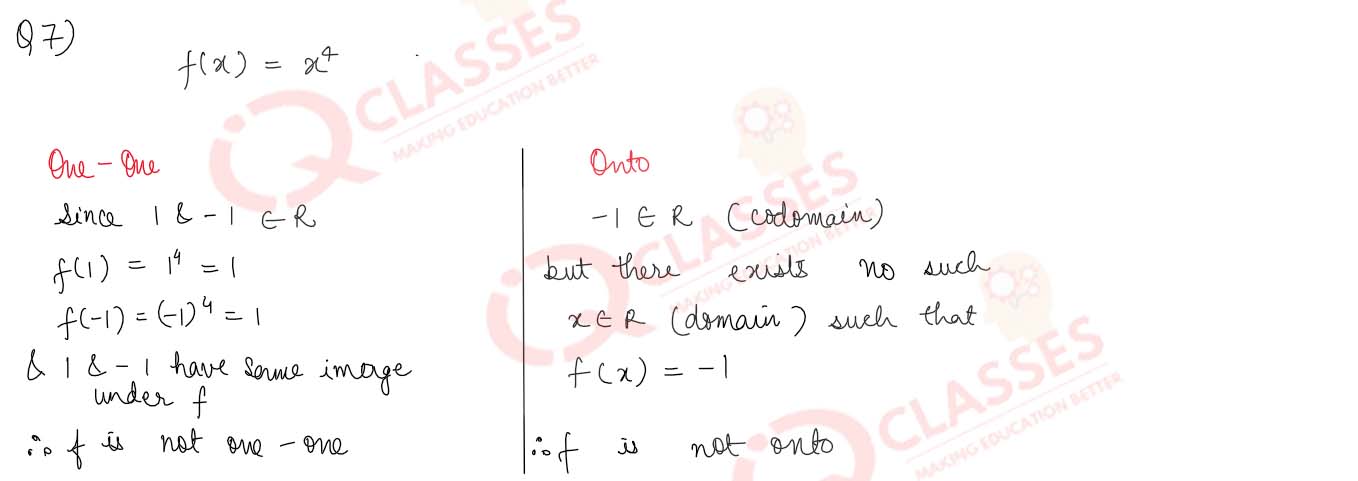 Q7)
f(x) = x⁴
One - One
Since 1 & -1 ∈ R
f(1) = 1⁴ = 1
f(-1) = (-1)⁴ = 1
& 1 & -1 have same image
under f
∴ f is not one-one
Onto
-1 ∈ R (codomain)
but there exists no such
x ∈ R (domain) such that
f(x) = -1
∴ f is not onto
iQ CLASSES
MAKING EDUCATION BETTER
iQ CLASSES
MAKING EDUCATION BETTER
iQ CLASSES
MAKING EDUCATION BETTER